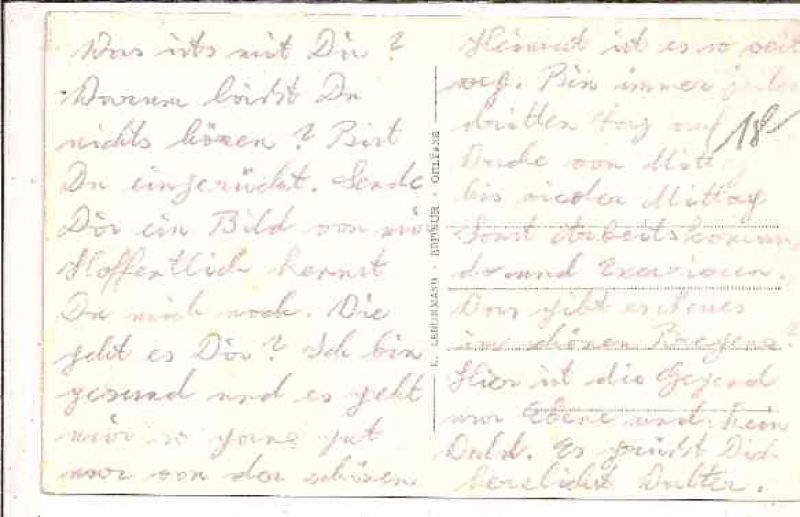 Was ists mit Dir?
Warum läißt Du
nichts hören? Bist
Du eingerückt. Sende
Dir ein Bild von mir
Hoffentlich kennst
Du mich noch. Wie
geht es Dir? Ich bin
gesund und es geht
mir so ganz gut
nur von der schönen
Heimat ist es so weit
weg. Bin immer jeden
dritten Tag auf
Wache von Mittag
bis wieder Mittag
Sonst Arbeitskomman
do und Exerzieren.
Was gibt es Neues
im schönen Bregenz?
Hier ist die Gegend
nur Ebene und kein
Wald. Es grüßt Dich
herzlichst Walter.
18
EDITEUR - ORLÉANS